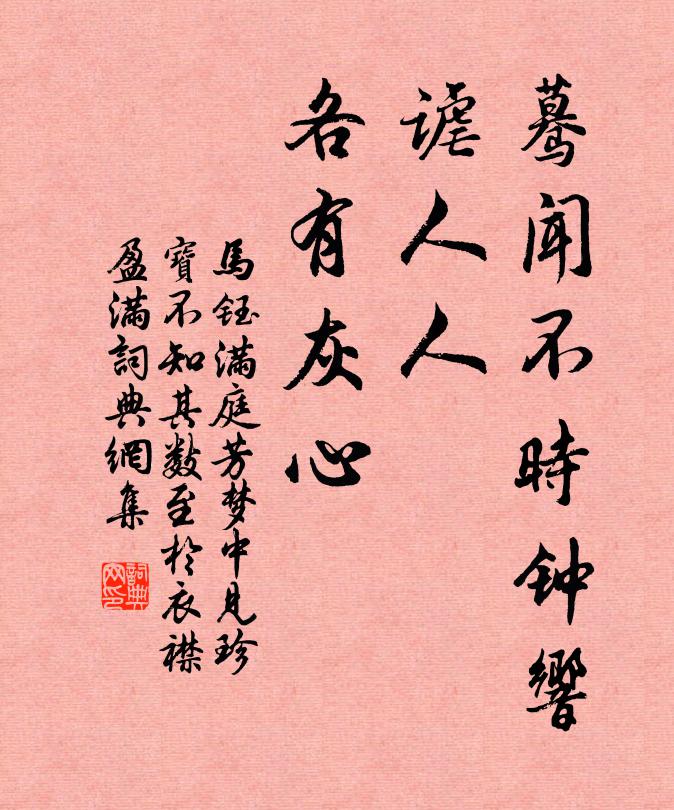 驀闻不時钟響
謔人人
各有灰心
馬钰滿庭芳梦中見珍
寶不知其数至於衣襟
盈滿詞典網集
詞典网印